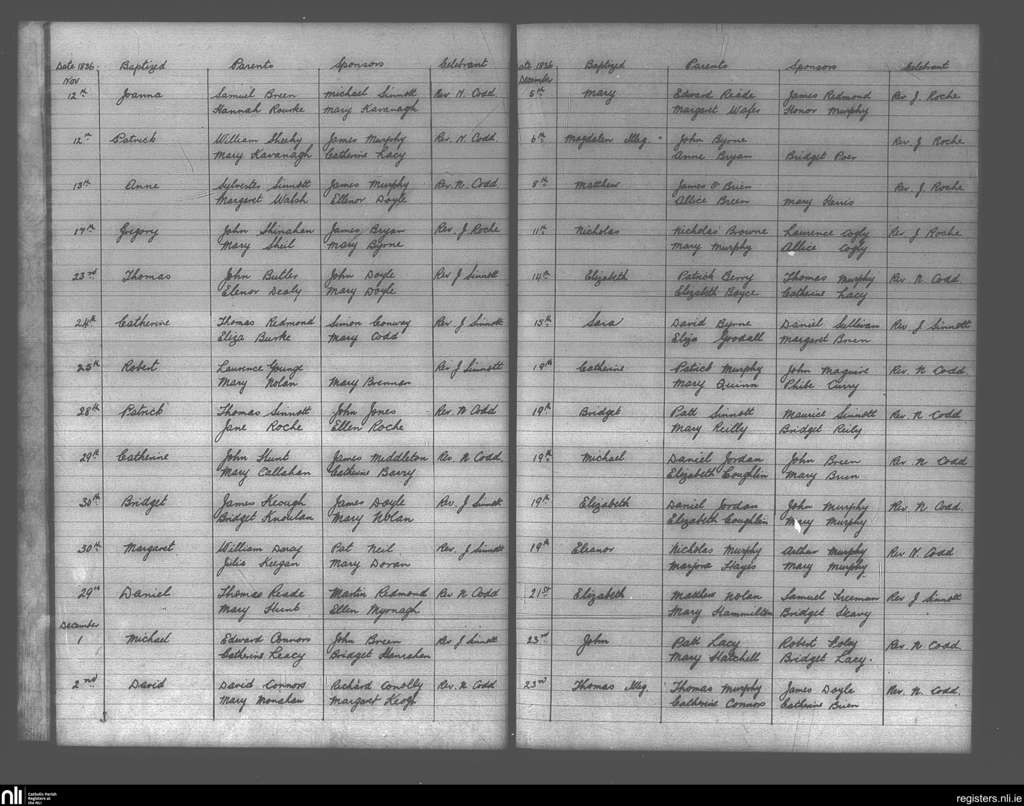 Date 1836. Baptized Parents Sponsors Celebrant
Nov
12th Joanna Samuel Breen Michael Sinnott Rev N. Codd
Hannah Rourke Mary Kavanagh
12th Patrick William Sheehy James Murphy Rev. N. Codd.
Mary Kavanagh Catherine Lacy
13th Anne Sylvester Sinnott James Murphy Rev. N. Codd
Margaret Walsh Ellenor Doyle
17th Gregory John Shinahan James Bryan Rev. J. Roche
Mary Sheil Mary Byrne
23rd Thomas John Butler John Doyle Rev J Sinnott
Elenor Dealy Mary Doyle
24th Catherine Thomas Redmond Simon Conway Rev J Sinnott
Eliza Burke Mary Codd
25th Robert Laurence Younge Rev J Sinnott
Mary Nolan Mary Brennan
28th Patrick Thomas Sinnott John Jones Rev. N Codd
Jane Roche Ellen Roche
29th Catherine John Hunt James Middleton Rev. N Codd
Mary Callahan Catherine Barry
30th Bridget James Keough James Doyle Rev. J Sinnott
Bridget Knowlan Mary Nolan
30th Margaret William Darcy Pat Neil Rev. J Sinnott
Julia Keegan Mary Doran
29th Daniel Thomas Reade Martin Redmond Rev N Codd
Mary Hunt Ellen Myrnagh
December
1 Michael Edward Connors John Breen Rev J Sinnott
Catherine Leacy Bridget Hanrahan
2nd David David Connors Richard Conolly Rev. N Codd
Mary Monahan Margaret Keogh
ate 1836. Baptized Parents Sponsors Celebrant
December
5th Mary Edward Reade James Redmond Rev J. Roche
Margaret Wafer Honor Murphy
6th Magdalen Illeg. John Byrne Rev. J Roche
Anne Bryan Bridget Poer
8th Matthew James O'Brien Rev. J Roche
Allice Breen Mary
11th Nicholas Nicholas Browne Laurence Cogly Rev J Roche
Mary Murphy Allice Cogly
14th Elizabeth Patrick Berry Thomas Murphy Rev N Codd
Elizabeth Boyce Catherine Lacy
15th Sara David Byrne Daniel Sullivan Rev J Sinnott
Eliza Goodall Margaret Brien
19th Catherine Patrick Murphy John Maguire Rev. N Codd
Mary Quinn Phibe Curry
19th Bridget Patt Sinnott Maurice Sinnott Rev. N Codd
Mary Reilly Bridget Reily
19th Michael Daniel Jordan John Breen Rev N Codd
Elizabeth Coughlin Mary Brien
19th Elizabeth Daniel Jordan John Murphy Rev. N Codd.
Elizabeth Coughlin Mary Murphy
19th Eleanor Nicholas Murphy Arthur Murphy Rev N Codd
Marjora Hayes Mary Murphy
21st Elizabeth Matthew Nolan Samuel Freeman Rev J Sinnott
Mary Hammilton Bridget Skavy
23rd John Patt Lacy Robert Foley Rev. N Codd
Mary Hatchell Bridget Lacy.
23rd Thomas Illeg. Thomas Murphy James Doyle Rev. N. Codd.
Catherine Connors Catherine Brien
nli Catholic Parish
Registers at
the NLI
registers.nli.ie